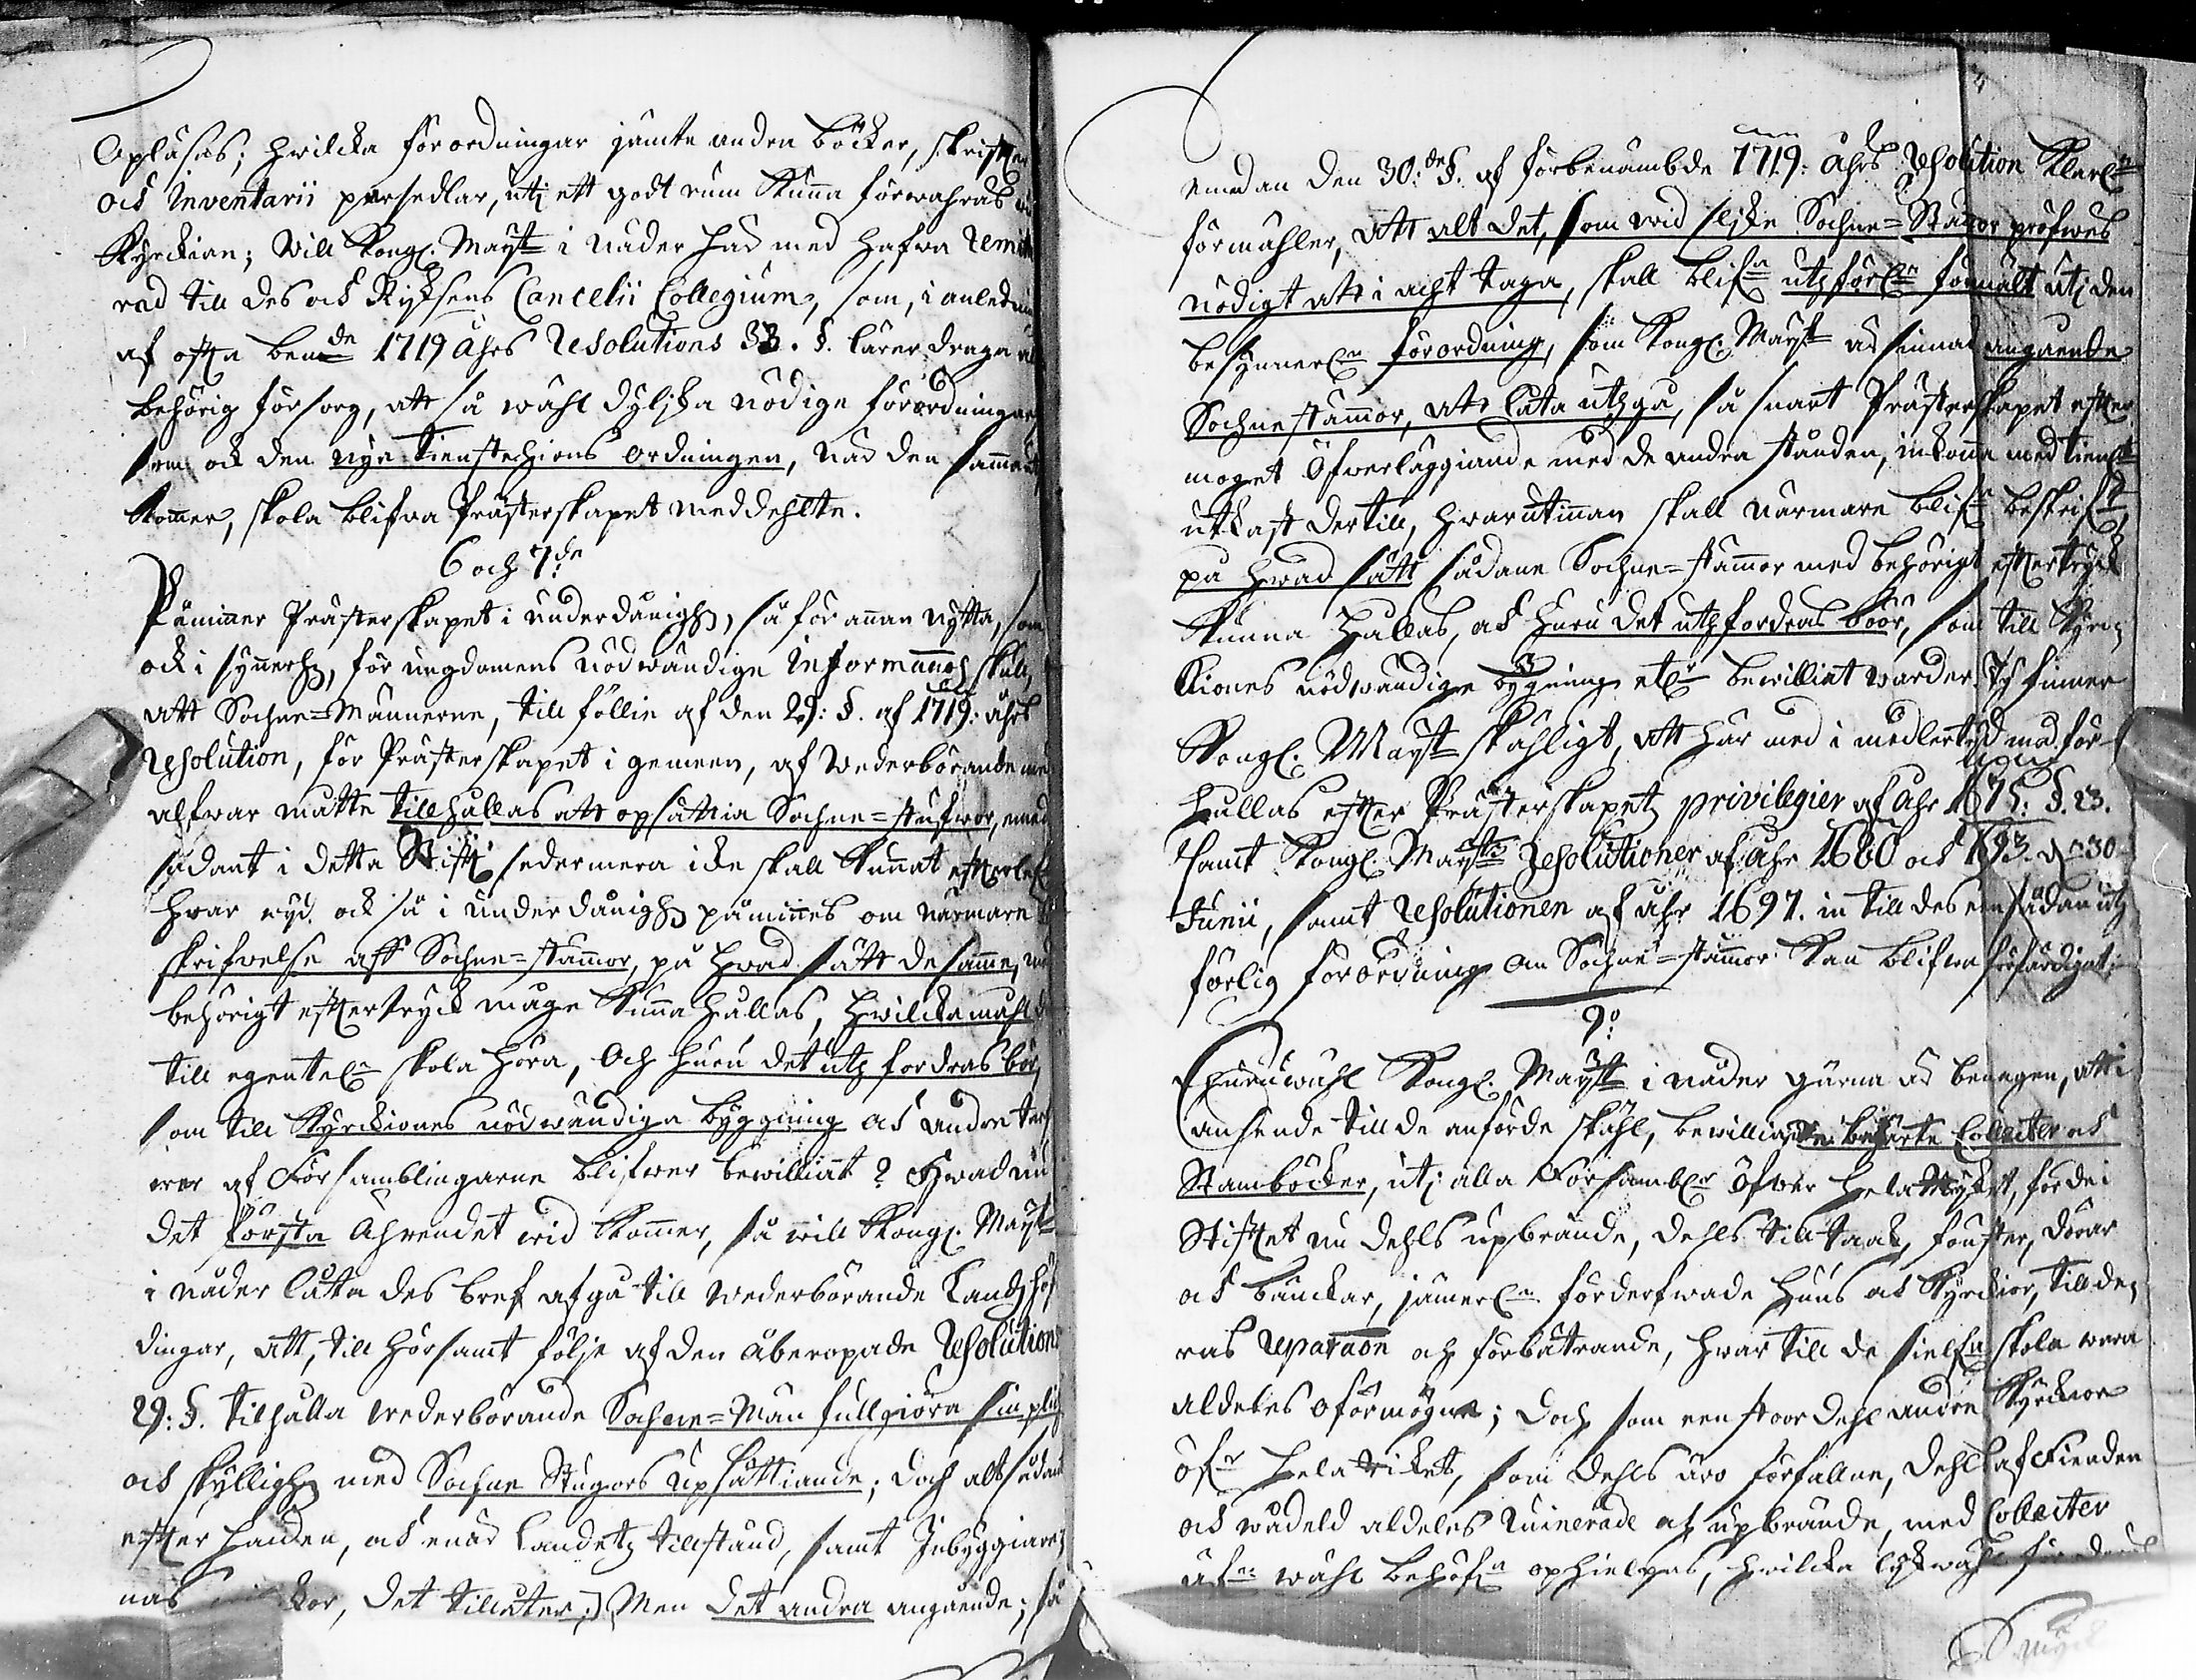 Opläsas; hwilcka förordningar jämte andra böcker, skrifter
och Inventarii persedlar, uti ett godt rum kunna förwahras wid
Kyrckian; Will Kongl. Mayt i nåder här med hafwa remitte
rad till des och Rijksens Cancelii Collegium, som, i anledning
af ofta bemde 1719 åhrs Resolutions 33. §. lärer draga
behörig försorg, att så wähl dylijka nödige förordningar
som ock den nya tienstehions ordningen, när den sammans
kommer, skola blifwa Prästerskapet meddehlte.
6 och 7de
Påminner Prästerskapet i underdånigh, så för annan nytta, som
ock i synnerh, för ungdomens nödwändige information skull,
att Sochne-Männerne, till föllie af den 29: §. af 1719: åhrs
Resolution, för Prästerskapet i gemeen, af Wederbörande med
alfwar måtte tillhållas att opsättia Sochne-stufwor, emedan
sådant i detta Stifft sedermera icke skall kunnat
hwar wijd ock så i underdånigh påminnes om närmare
skrifwelse aff Sochne-stämmor, på hwad sätt de samme, med
behörigt eftertryck måge kunna hållas, hwilcka mahl
till egentel skola höra, och huru det utfordras bör,
som till Kyrckiones nödwändiga byggning och andre
wor af Församblingarne blifwer bewilliat? Hwad nu
det första Ährendet wid kommer, så will Kongl. Mayt
i nåder låta des bref afgå till wederbörande Landzhöf
dingar, att, till hörsamt följe af den åberopade Resolutions
29: §. tilhålla wederbörande Sochne-Män fullgiöra sin plicht
och skylligh med Sochne Stugors upsättiande; doch alt sådant
efter handen, och enär Landetz tillstånd, samt Inbyggiarer
nas wilkor, det tillåter; Men det andra angående; så
emedan den 30:de §. af förbenämbde 1719: åhrs Resolution klarl
förmähler, att alt det, som wid slijke Sochne-Stämmor pröfwas
nödigt att i acht taga, skall blifa utförl förmält uti den
besynnerl förordning, som Kongl. Mayt är sinnat angående
Sochnestämmor, att låta utgå, så snart Prästerskapet efter
moget Öfwerläggiande med de andra stånden, inkomma med tienl
utkast dertill, hwarutinnan skall närmare blifa beskrift,
på hwad sätt sådane Sochne-stämmor med behörigt eftertryck
kunna hållas, och huru det utfordras böör, som till Kyrc-
kiones nödwändige bygning etc bewilliat warder. Ty finner
Kongl. Mayt skähligt, att här med i medlertijd må för-
hållas efter Prästerskapetz privilegier af åhr 1675: §. 23.
samt Kongl. Maytz Resolutioner af åhr 1680 och 1693. d. 30
Junii, samt Resolutionen af åhr 1697. in till des een sådan ut-
förlig förordning om Sochne-stämmor kan blifwa förfärdigat.
9:o
Ehuruwähl Kongl. Mayt i nåder gärna är benägen, att i
anseende till de anförde skähl, bewillia de begärte Collecter och
Stamböcker, uti alla Församblr öfwer hela Rijket, för de i
Stiftet nu dehls upbrände, dehls till taak, fönster, dörar
och bänckar, jämerl förderfwade huus och Kyrckior, till de-
ras reparaon och förbättrande, hwar till de sielfa skola wara
aldeles oförmögne; Doch som een stoor dehl andre Kyrckior
öfr hela riket, som dehls äro förfallne, dehls af Fienden
och wådeld aldeles ruinerade och upbrände, med Collecter
wähl behöfa ophielpas, hwilcka lijkwähl